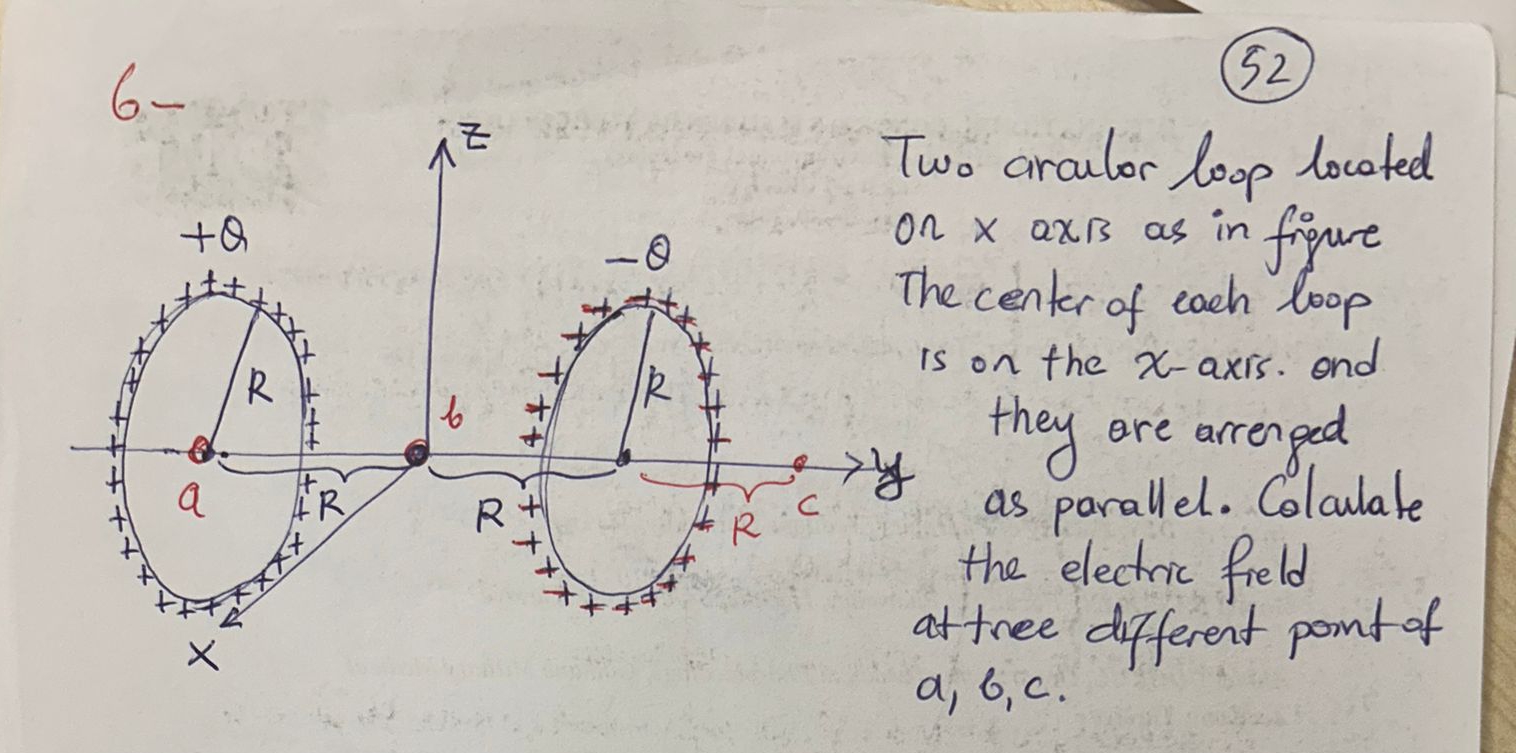 52
6-
Z
+Q
-Q
R
R
b
a
R
R
R
c
y
X
Two circular loop located
on x axis as in figure
The center of each loop
is on the x-axis. and
they are arrenged
as parallel. Calculate
the electric field
at tree different point of
a, b, c.